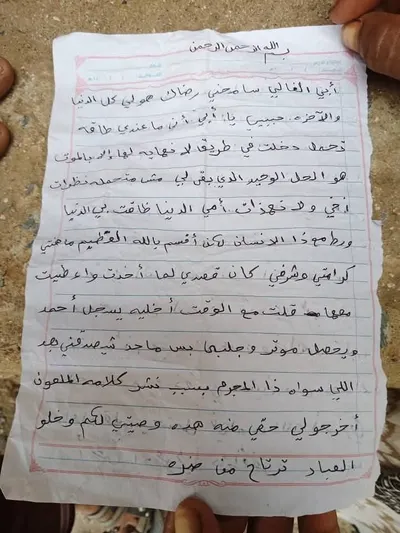 بسم الله الرحمن الرحمن
أبي الغالي سامحني رضاك هو لي كل الدنيا
والآخره حبيبي يا أبي أني ما عندي طاقه
تحمل دخلت في طريق لا نهايه لها إلا بالموت
هو الحل الوحيد الذي بقى لي مش متحمله نظرات
أخي ولا نهدات أمي الدنيا ظاقت بي الدنيا
ورطني ذا الانسان لكن أقسم بالله العظيم ما هنتي
كرامتي وشرفي كان قصدي لما أخذت واعطيت
معه قلت مع الوقت أخليه يسجل أحمد
ويحصل موتر وجلبها بس ماحد شيصدقني بعد
اللي سواه ذا المجرم بسبب نشر كلامه الملعون
أخرجولي حقي منه هذه وصيتي لكم وخلو
العباد ترتاح من ضره